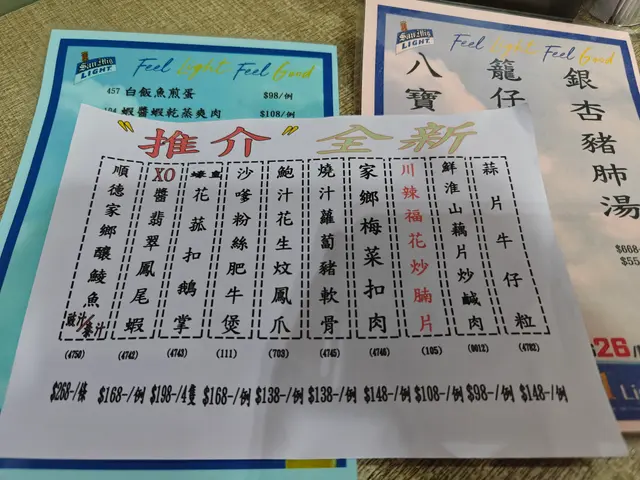 San Mig
LIGHT
Feel Light Feel Good
457 白飯魚煎蛋 $98/例
蝦醬蝦乾蒸爽肉 $108/例
San Mig
LIGHT
Feel Light Feel Good
銀杏豬肺湯
籠仔
八寶
"推介" 全新
順德家鄉釀鯪魚
豉汁/
XO醬翡翠鳳尾蝦
花菰扣鵝掌
沙嗲粉絲肥牛煲
鮑汁花生炆鳳爪
燒汁蘿蔔豬軟骨
家鄉梅菜扣肉
川辣福花炒腩片
鮮淮山藕片炒鹹肉
蒜片牛仔粒
(4750) (4742) (4743) (111) (703) (4745) (4746) (105) (0612) (4782)
$268-/條 $168-/例 $198-/4隻 $168-/例 $138-/例 $138-/例 $148-/例 $108-/例 $98-/例 $148-/例